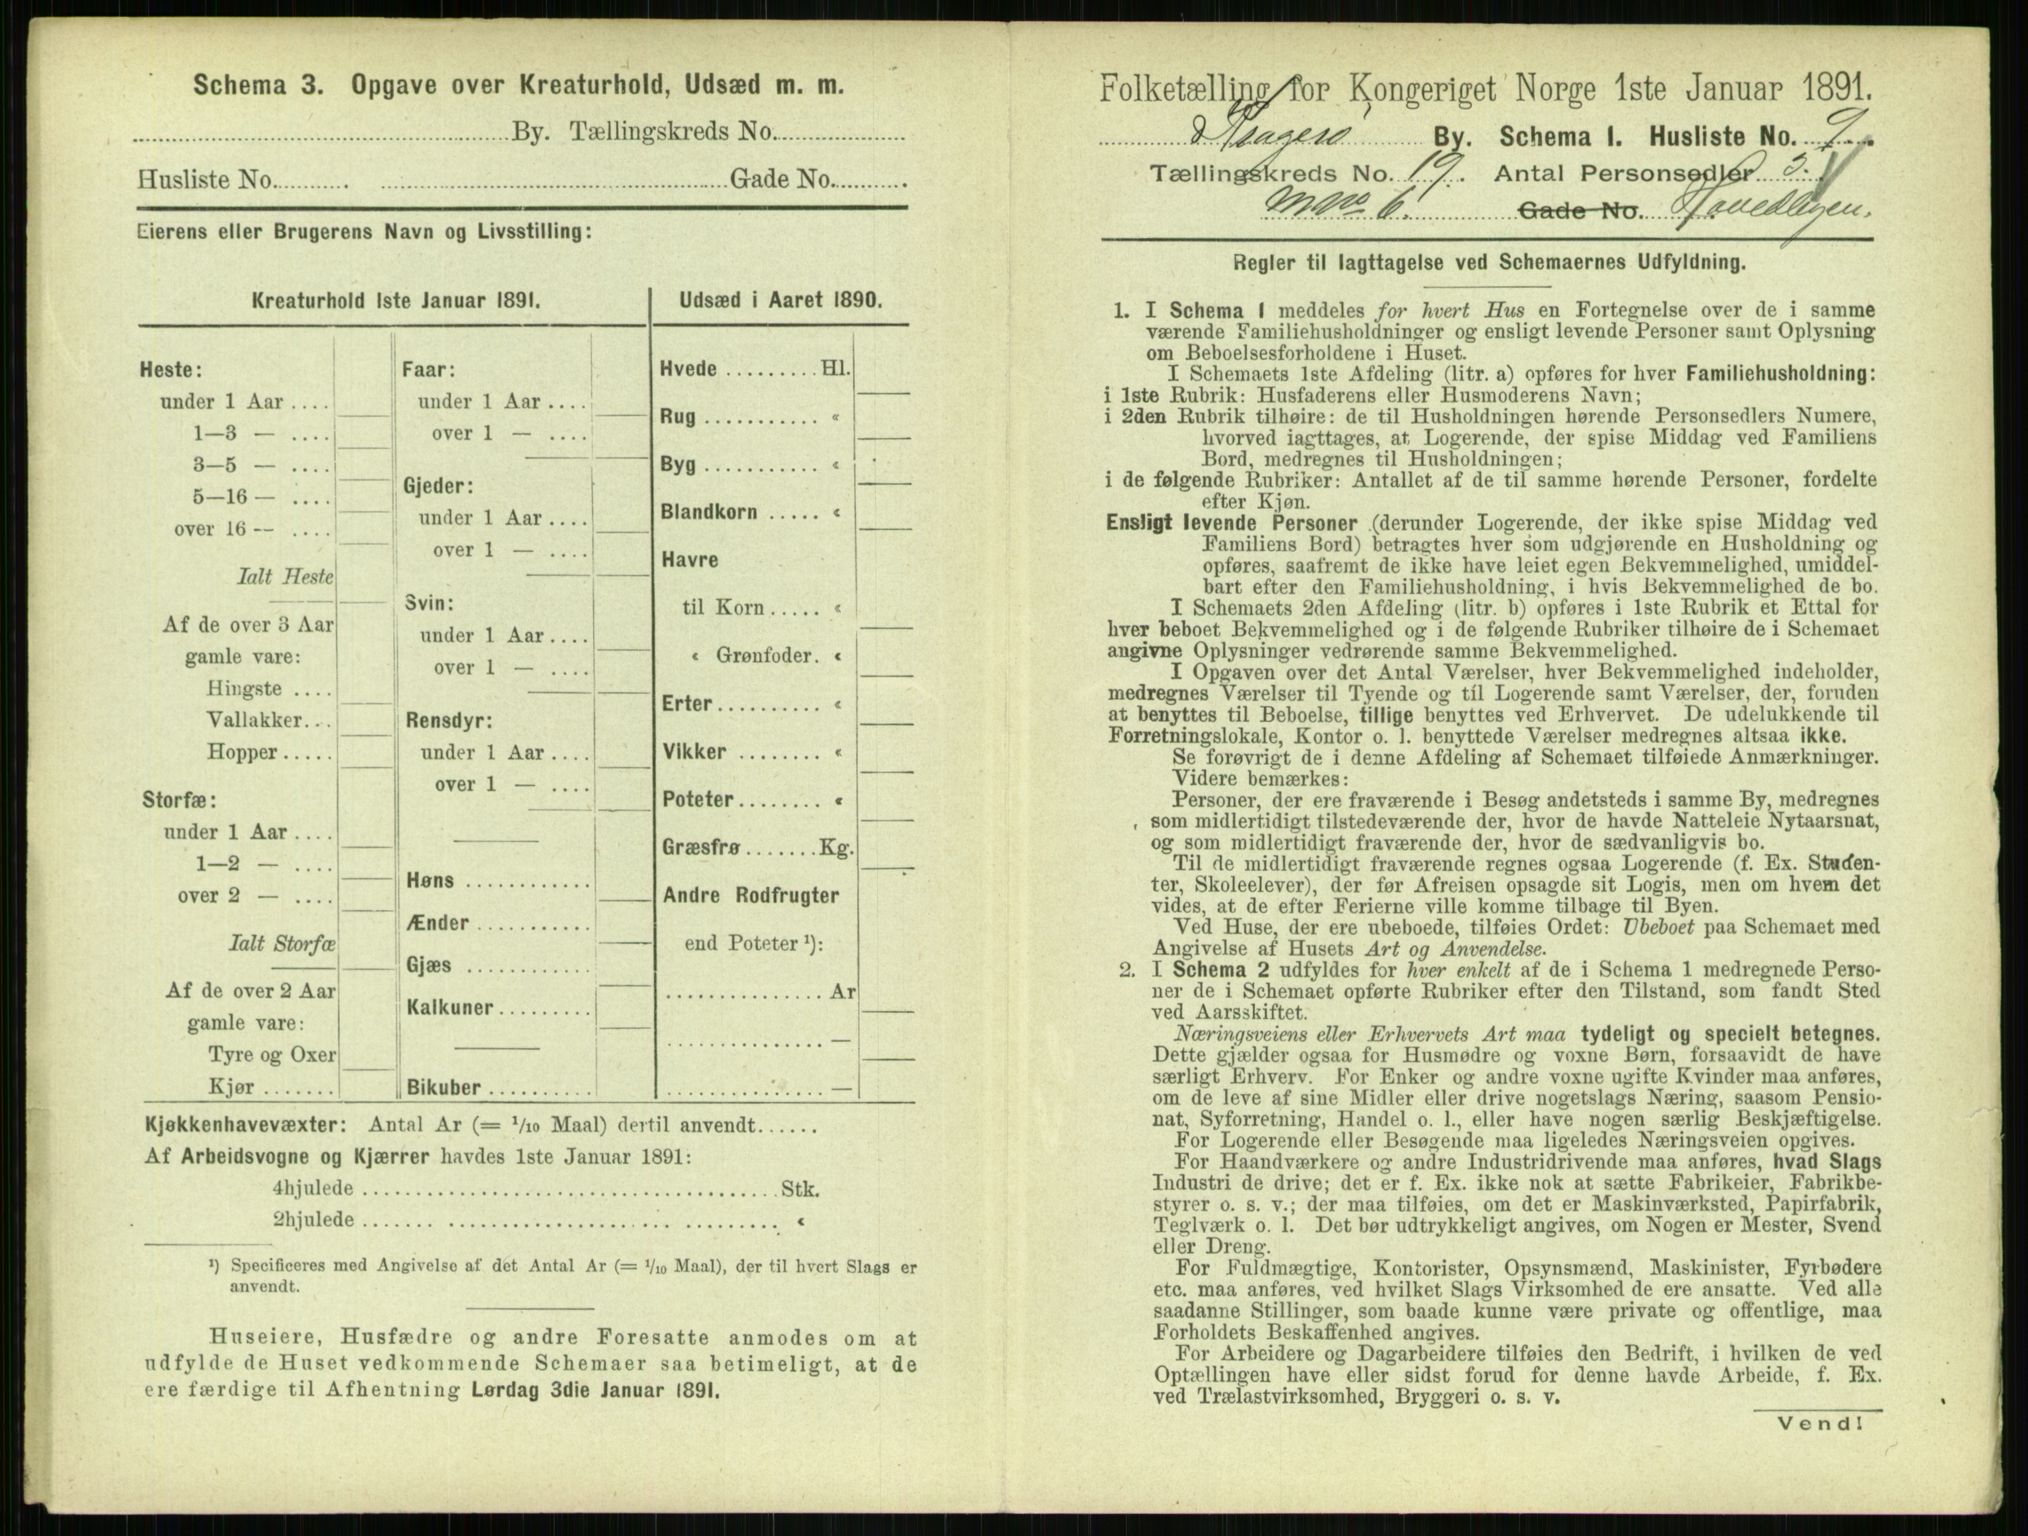 Schema 3. Opgave over Kreaturhold, Udsæd m. m.
By. Tællingskreds No.
Husliste No. Gade No.
Eierens eller Brugerens Navn og Livsstilling:
Kreaturhold 1ste Januar 1891.
Heste:
under 1 Aar ....
1—3 — ....
3—5 — ....
5—16 — ....
over 16 — ....
Ialt Heste
Af de over 3 Aar
gamle vare:
Hingste ....
Vallakker...
Hopper.....
Storfæ:
under 1 Aar ....
1—2 — ....
over 2 — ....
Ialt Storfæ
Af de over 2 Aar
gamle vare:
Tyre og Oxer
Kjør .......
Faar:
under 1 Aar ....
over 1 — ....
Gjeder:
under 1 Aar ....
over 1 — ....
Svin:
under 1 Aar ....
over 1 — ....
Rensdyr:
under 1 Aar ....
over 1 — ....
Høns ............
Ænder ...........
Gjæs ............
Kalkuner.........
Bikuber..........
Udsæd i Aaret 1890.
Hvede ......... Hl.
Rug ........... «
Byg ........... «
Blandkorn ..... «
Havre
til Korn..... «
« Grønfoder. «
Erter.......... «
Vikker ........ «
Poteter........ «
Græsfrø....... Kg.
Andre Rodfrugter
end Poteter ¹):
............... Ar
............... —
............... —
Kjøkkenhavevæxter: Antal Ar (= 1/10 Maal) dertil anvendt......
Af Arbeidsvogne og Kjærrer havdes 1ste Januar 1891:
4hjulede ....................................... Stk.
2hjulede ....................................... «
¹) Specificeres med Angivelse af det Antal Ar (= 1/10 Maal), der til hvert Slags er
anvendt.
Huseiere, Husfædre og andre Foresatte anmodes om at
udfylde de Huset vedkommende Schemaer saa betimeligt, at de
ere færdige til Afhentning Lørdag 3die Januar 1891.
Folketælling for Kongeriget Norge 1ste Januar 1891.
Kragerø By. Schema I. Husliste No. 9.
Tællingskreds No. 19. Antal Personsedler 3.
6. Gade No.
Regler til Iagttagelse ved Schemaernes Udfyldning.
1. I Schema 1 meddeles for hvert Hus en Fortegnelse over de i samme
værende Familiehusholdninger og ensligt levende Personer samt Oplysning
om Beboelsesforholdene i Huset.
I Schemaets 1ste Afdeling (litr. a) opføres for hver Familiehusholdning:
i 1ste Rubrik: Husfaderens eller Husmoderens Navn;
i 2den Rubrik tilhøire: de til Husholdningen hørende Personsedlers Numere,
hvorved iagttages, at Logerende, der spise Middag ved Familiens
Bord, medregnes til Husholdningen;
i de følgende Rubriker: Antallet af de til samme hørende Personer, fordelte
efter Kjøn.
Ensligt levende Personer (derunder Logerende, der ikke spise Middag ved
Familiens Bord) betragtes hver som udgjørende en Husholdning og
opføres, saafremt de ikke have leiet egen Bekvemmelighed, umiddel-
bart efter den Familiehusholdning, i hvis Bekvemmelighed de bo.
I Schemaets 2den Afdeling (litr. b) opføres i 1ste Rubrik et Ettal for
hver beboet Bekvemmelighed og i de følgende Rubriker tilhøire de i Schemaet
angivne Oplysninger vedrørende samme Bekvemmelighed.
I Opgaven over det Antal Værelser, hver Bekvemmelighed indeholder,
medregnes Værelser til Tyende og til Logerende samt Værelser, der, foruden
at benyttes til Beboelse, tillige benyttes ved Erhvervet. De udelukkende til
Forretningslokale, Kontor o. l. benyttede Værelser medregnes altsaa ikke.
Se forøvrigt de i denne Afdeling af Schemaet tilføiede Anmærkninger.
Videre bemærkes:
Personer, der ere fraværende i Besøg andetsteds i samme By, medregnes
som midlertidigt tilstedeværende der, hvor de havde Natteleie Nytaarsnat,
og som midlertidigt fraværende der, hvor de sædvanligvis bo.
Til de midlertidigt fraværende regnes ogsaa Logerende (f. Ex. Studen-
ter, Skoleelever), der før Afreisen opsagde sit Logis, men om hvem det
vides, at de efter Ferierne ville komme tilbage til Byen.
Ved Huse, der ere ubeboede, tilføies Ordet: Ubeboet paa Schemaet med
Angivelse af Husets Art og Anvendelse.
2. I Schema 2 udfyldes for hver enkelt af de i Schema 1 medregnede Perso-
ner de i Schemaet opførte Rubriker efter den Tilstand, som fandt Sted
ved Aarsskiftet.
Næringsveiens eller Erhvervets Art maa tydeligt og specielt betegnes.
Dette gjælder ogsaa for Husmødre og voxne Børn, forsaavidt de have
særligt Erhverv. For Enker og andre voxne ugifte Kvinder maa anføres,
om de leve af sine Midler eller drive nogetslags Næring, saasom Pensio-
nat, Syforretning, Handel o. l., eller have nogen særlig Beskjæftigelse.
For Logerende eller Besøgende maa ligeledes Næringsveien opgives.
For Haandværkere og andre Industridrivende maa anføres, hvad Slags
Industri de drive; det er f. Ex. ikke nok at sætte Fabrikeier, Fabrikbe-
styrer o. s. v.; der maa tilføies, om det er Maskinværksted, Papirfabrik,
Teglværk o. l. Det bør udtrykkeligt angives, om Nogen er Mester, Svend
eller Dreng.
For Fuldmægtige, Kontorister, Opsynsmænd, Maskinister, Fyrbødere
etc. maa anføres, ved hvilket Slags Virksomhed de ere ansatte. Ved alle
saadanne Stillinger, som baade kunne være private og offentlige, maa
Forholdets Beskaffenhed angives.
For Arbeidere og Dagarbeidere tilføies den Bedrift, i hvilken de ved
Optællingen have eller sidst forud for denne havde Arbeide, f. Ex.
ved Trælastvirksomhed, Bryggeri o. s. v.
Vend!